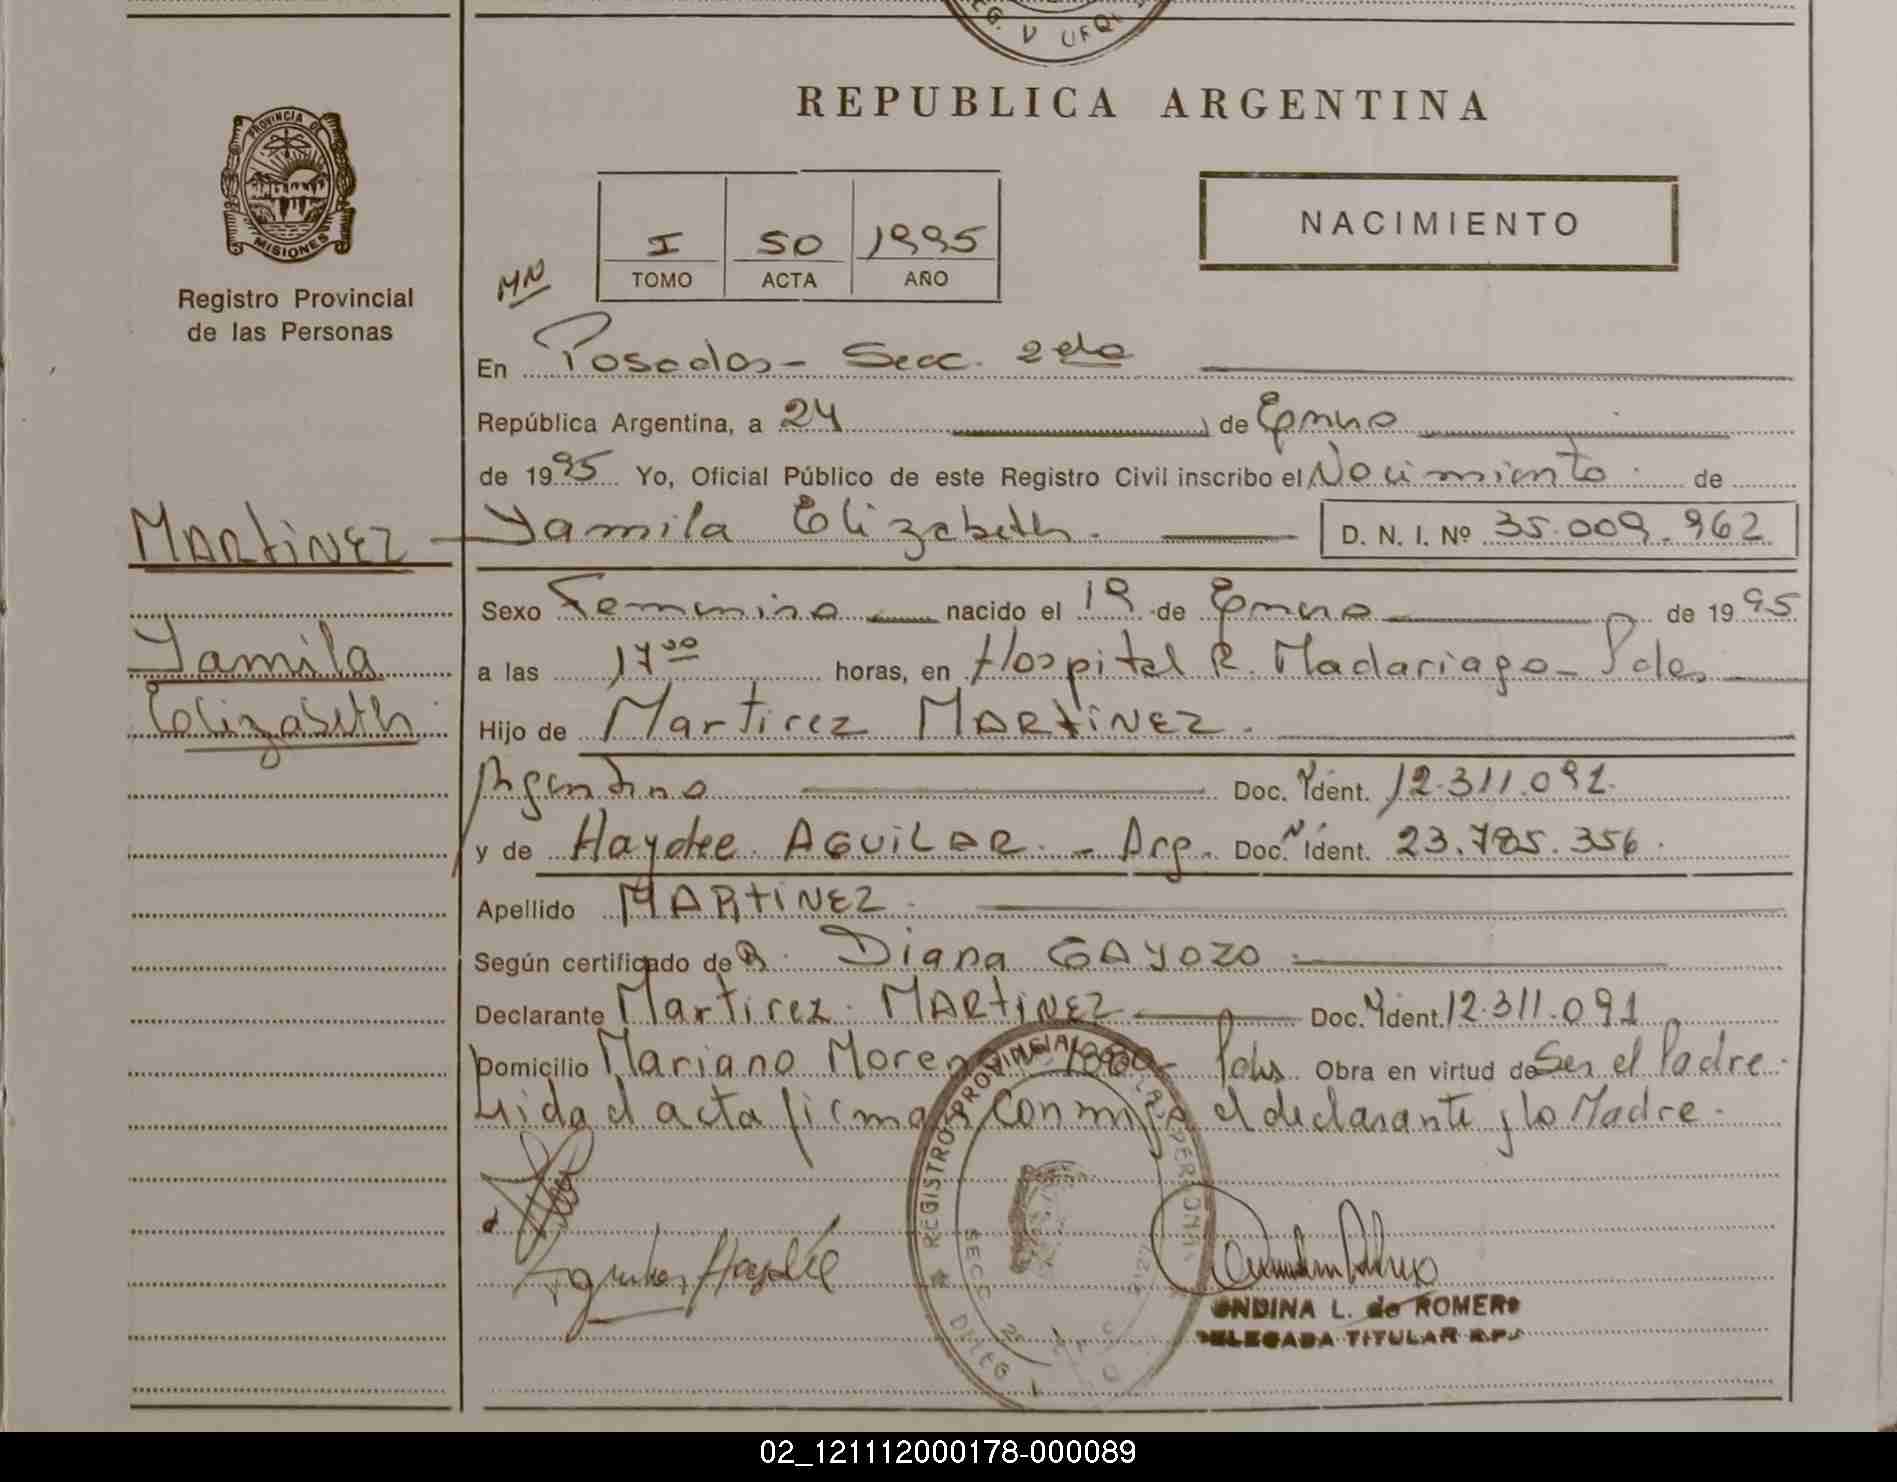 REG. V URQU
REPUBLICA ARGENTINA
PROVINCIA DE
MISIONES
Registro Provincial
de las Personas
NACIMIENTO
I 50 1995
TOMO ACTA AÑO
MN
En Posadas - Secc. 2da
República Argentina, a 24 de Enero
de 1995 Yo, Oficial Público de este Registro Civil inscribo el Nacimiento de
MARTINEZ Yamila Elizabeth. D. N. I. Nº 35.009.962
Sexo Femenino nacido el 19 de Enero de 1995
Yamila
a las 17 30 horas, en Hospital R. Madariaga - Pdas
Elizabeth
Hijo de Martirez MARTINEZ.
Argentino Doc. Ident. 12.311.091.
y de Haydee AGUILAR. - Arg. Doc. Ident. 23.785.356.
Apellido MARTINEZ.
Según certificado de Diana GAYOZO
Declarante Martirez MARTINEZ Doc. Ident. 12.311.091
Domicilio Mariano Moreno Pdas Obra en virtud de Ser el Padre.
Leida el acta firman conmigo el declarante y la Madre.
REGISTRO PROVINCIAL DE LAS PERSONAS
SECC
DELEG
Aguilar Haydée
ONDINA L. de ROMERO
DELEGADA TITULAR R.P.
02_121112000178-000089